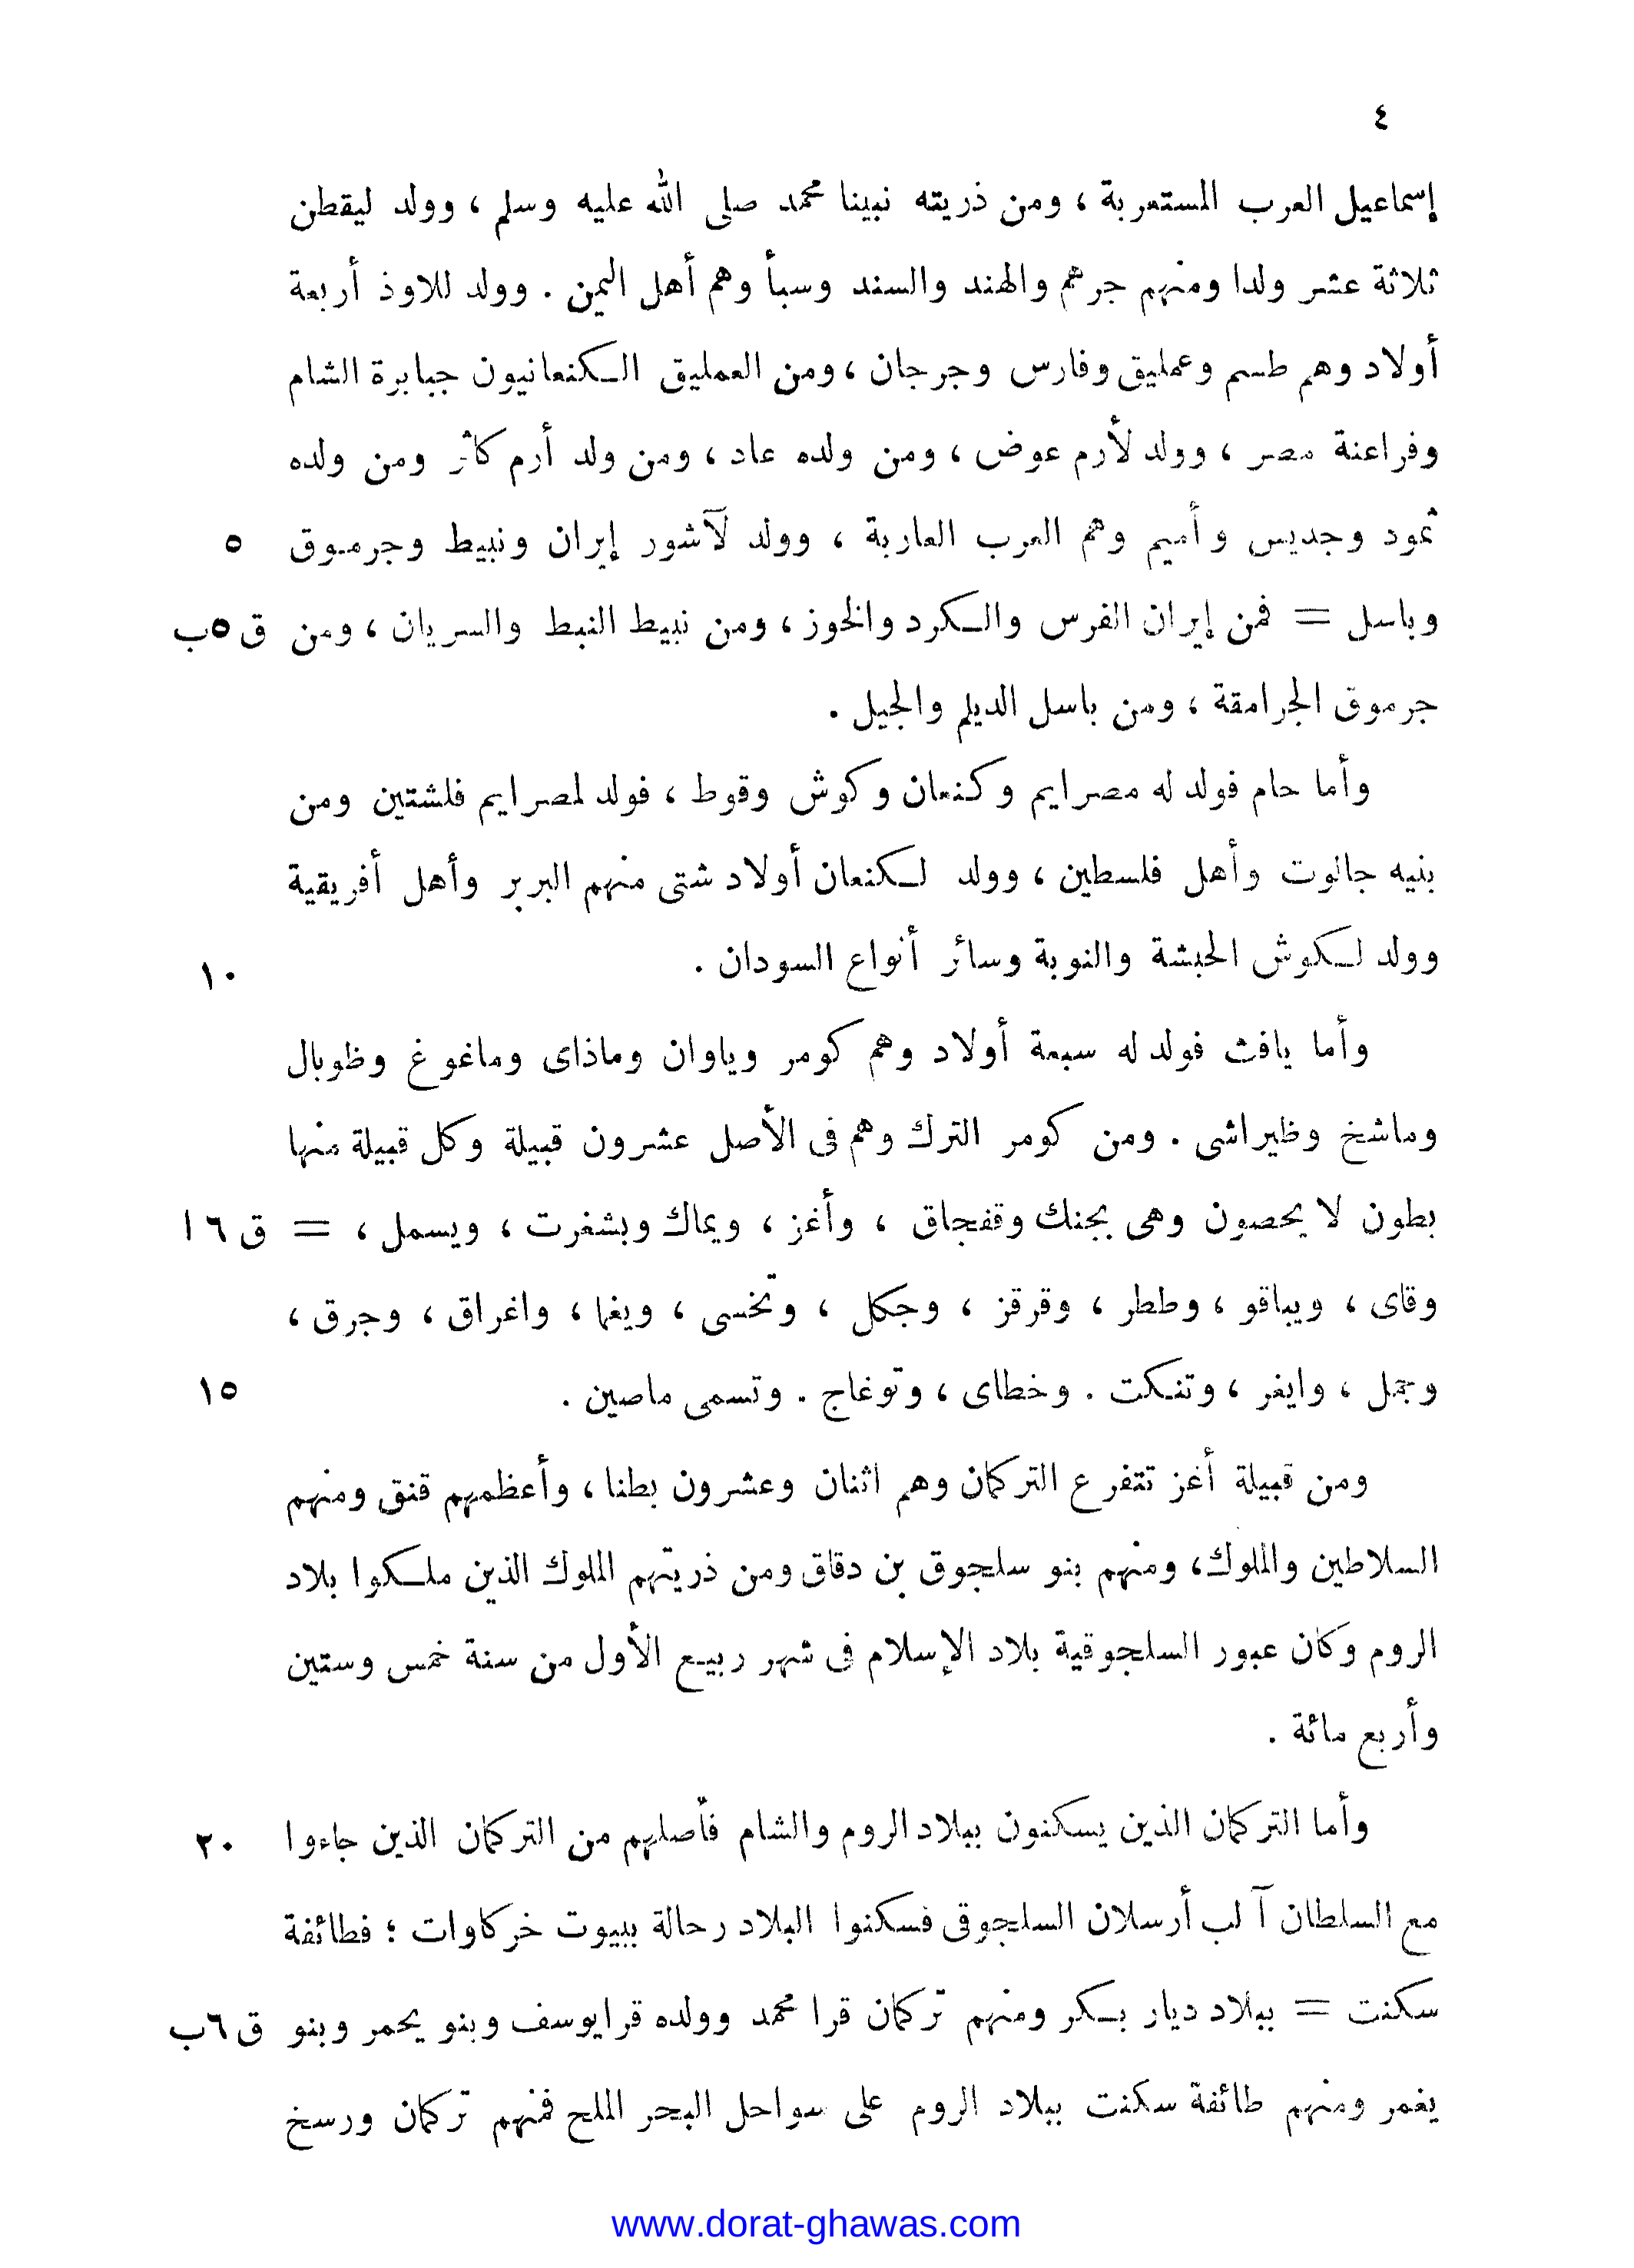 ٤
إسماعيل العرب المستعربة ، ومن ذريته نبينا محمد صلى الله عليه وسلم ، وولد ليقطن
ثلاثة عشر ولدا ومنهم جرهم والهند والسند وسبأ وهم أهل اليمن . وولد للاوذ أربعة
أولاد وهم طسم وعمليق وفارس وجرجان ، ومن العمليق الكنعانيون جبابرة الشام
وفراعنة مصر ، وولد لأرم عوض ، ومن ولده عاد ، ومن ولد أرم كاثر ومن ولده
ثمود وجديس وأميم وهم العرب العاربة ، وولد لآشور إيران ونبيط وجرموق ٥
وباسل = فمن إيران الفرس والكرد والخوز ، ومن نبيط النبط والسريان ، ومن ق ٥ب
جرموق الجرامقة ، ومن باسل الديلم والجيل .
وأما حام فولد له مصرايم وكنعان وكوش وقوط ، فولد لمصرايم فلشتين ومن
بنيه جالوت وأهل فلسطين ، وولد لكنعان أولاد شتى منهم البربر وأهل أفريقية
وولد لكوش الحبشة والنوبة وسائر أنواع السودان . ١٠
وأما يافث فولد له سبعة أولاد وهم كومر وياوان وماذاى وماغوغ وظوبال
وماشخ وظيراشى . ومن كومر الترك وهم فى الأصل عشرون قبيلة وكل قبيلة منها
بطون لا يحصون وهى بجنك وقفجاق ، وأغز ، ويماك وبشغرت ، ويسمل ، = ق ٦ ا
وقاى ، ويباقو ، وططر ، وقرقز ، وجكل ، وتخسى ، ويغما ، واغراق ، وجرق ،
وجمل ، وايغر ، وتنكت . وخطاى ، وتوغاج . وتسمى ماصين . ١٥
ومن قبيلة أغز تتفرع التركمان وهم اثنان وعشرون بطنا ، وأعظمهم قنق ومنهم
السلاطين والملوك، ومنهم بنو سلجوق بن دقاق ومن ذريتهم الملوك الذين ملكوا بلاد
الروم وكان عبور السلجوقية بلاد الإسلام فى شهر ربيع الأول من سنة خمس وستين
وأربع مائة .
وأما التركمان الذين يسكنون ببلاد الروم والشام فأصلهم من التركمان الذين جاءوا ٢٠
مع السلطان آلب أرسلان السلجوقى فسكنوا البلاد رحالة ببيوت خركاوات ؛ فطائفة
سكنت = ببلاد ديار بكر ومنهم تركمان قرا محمد وولده قرايوسف وبنو يحمر وبنو ق ٦ب
يغمر ومنهم طائفة سكنت ببلاد الروم على سواحل البحر الملح فمنهم تركمان ورسخ
www.dorat-ghawas.com